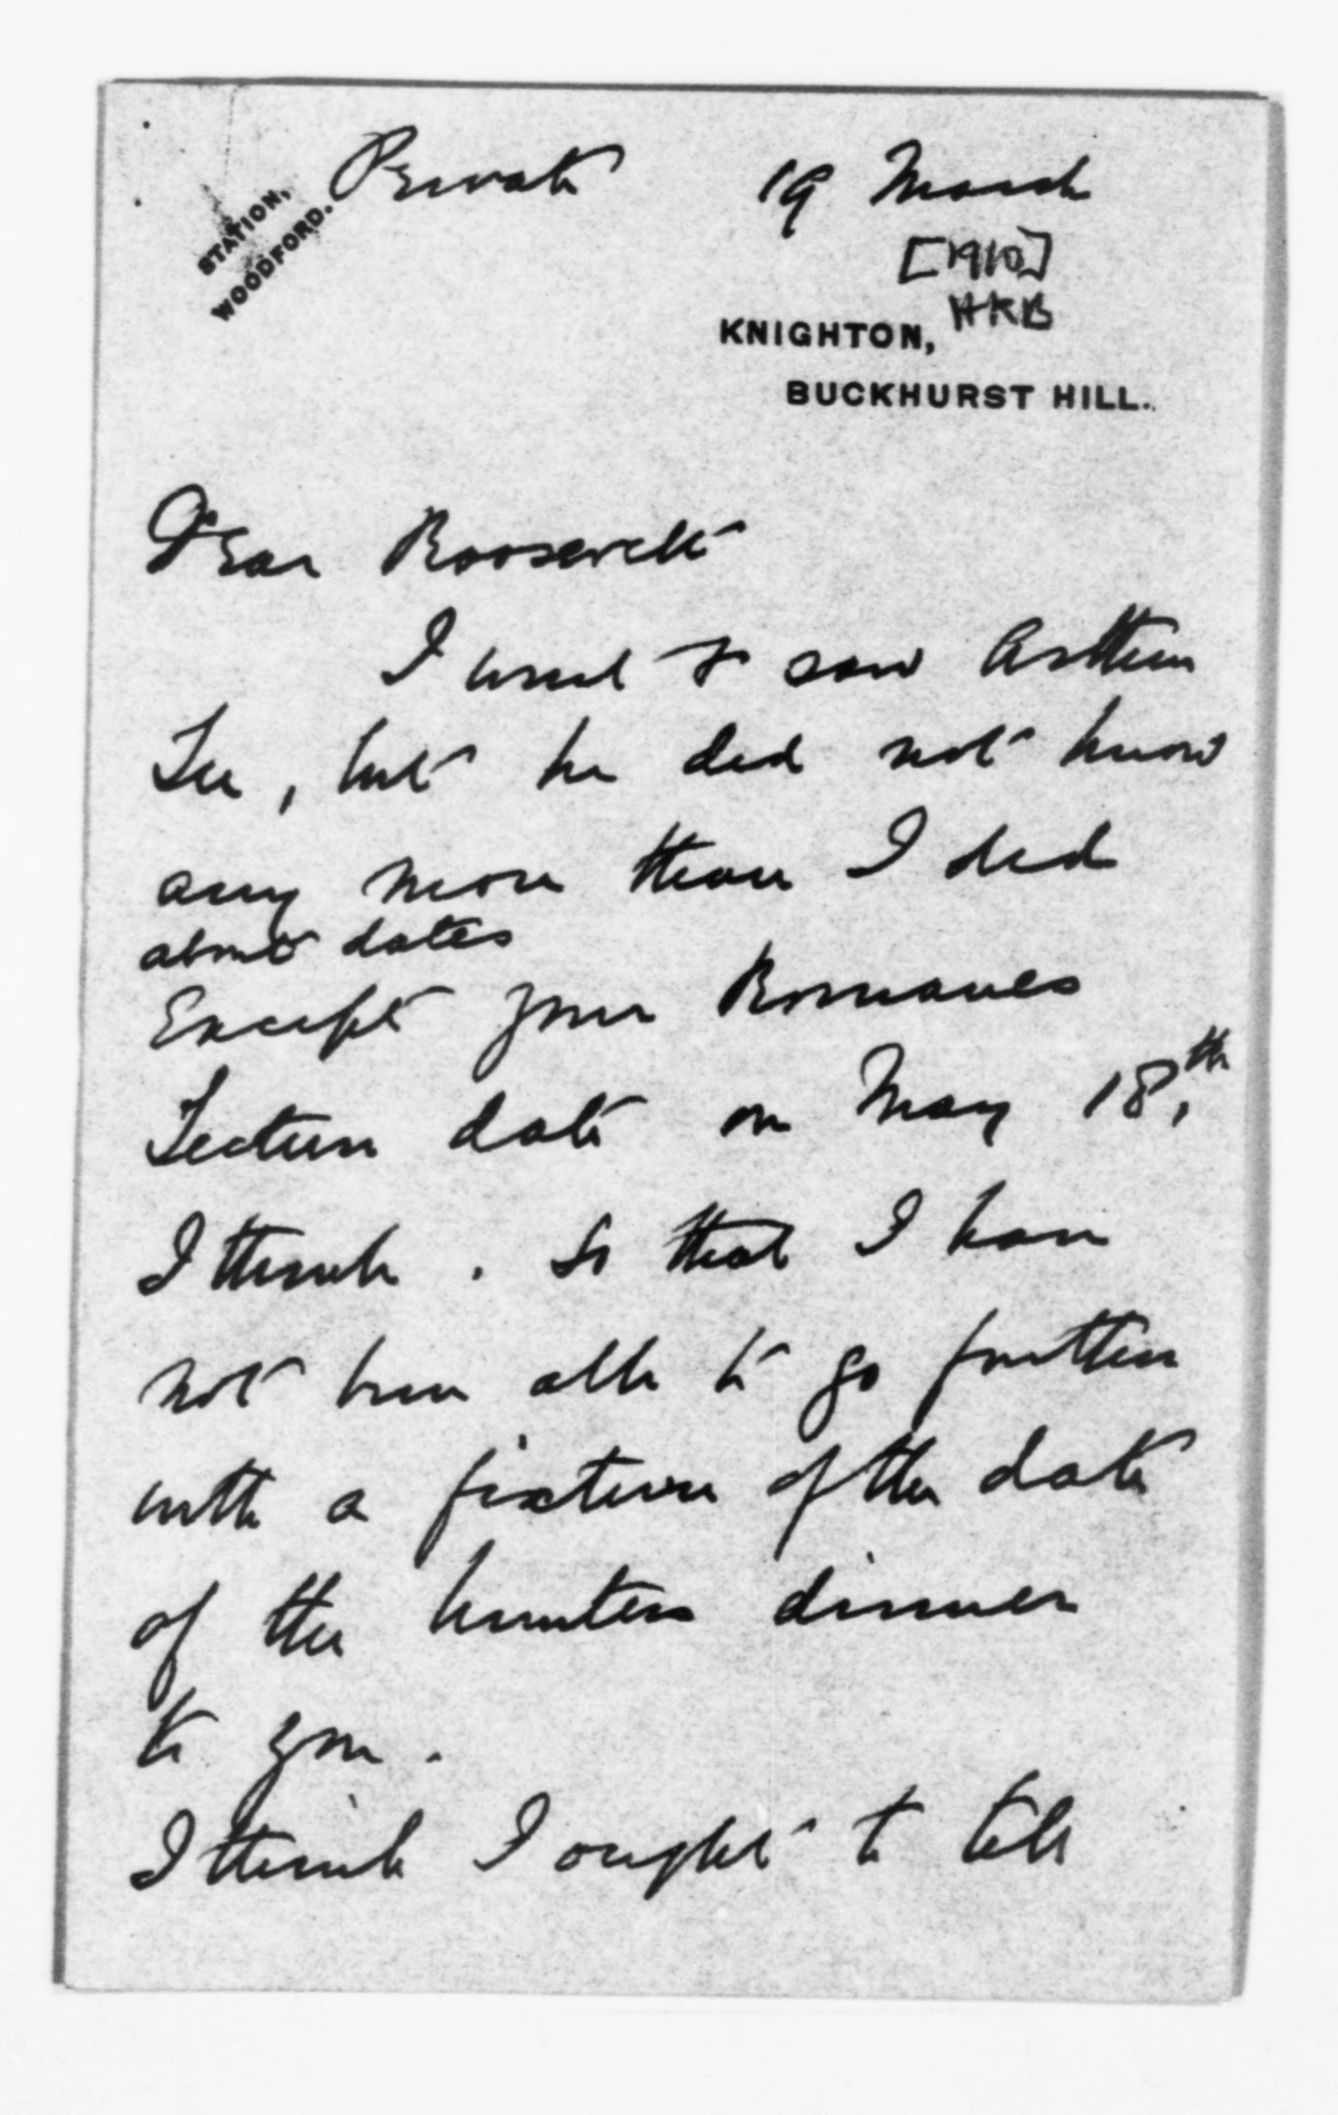 Private 19 March
STATION,
WOODFORD.
[1910]
HKB
KNIGHTON,
BUCKHURST HILL.
Dear Roosevelt
I went & saw Arthur
Lee, but he did not know
any more than I did
about dates
Except your Romanes
Lecture date on May 18th,
I think. So that I have
not been able to go further
with a fixture of the date
of the hunters dinner
to you.
I think I ought to tell